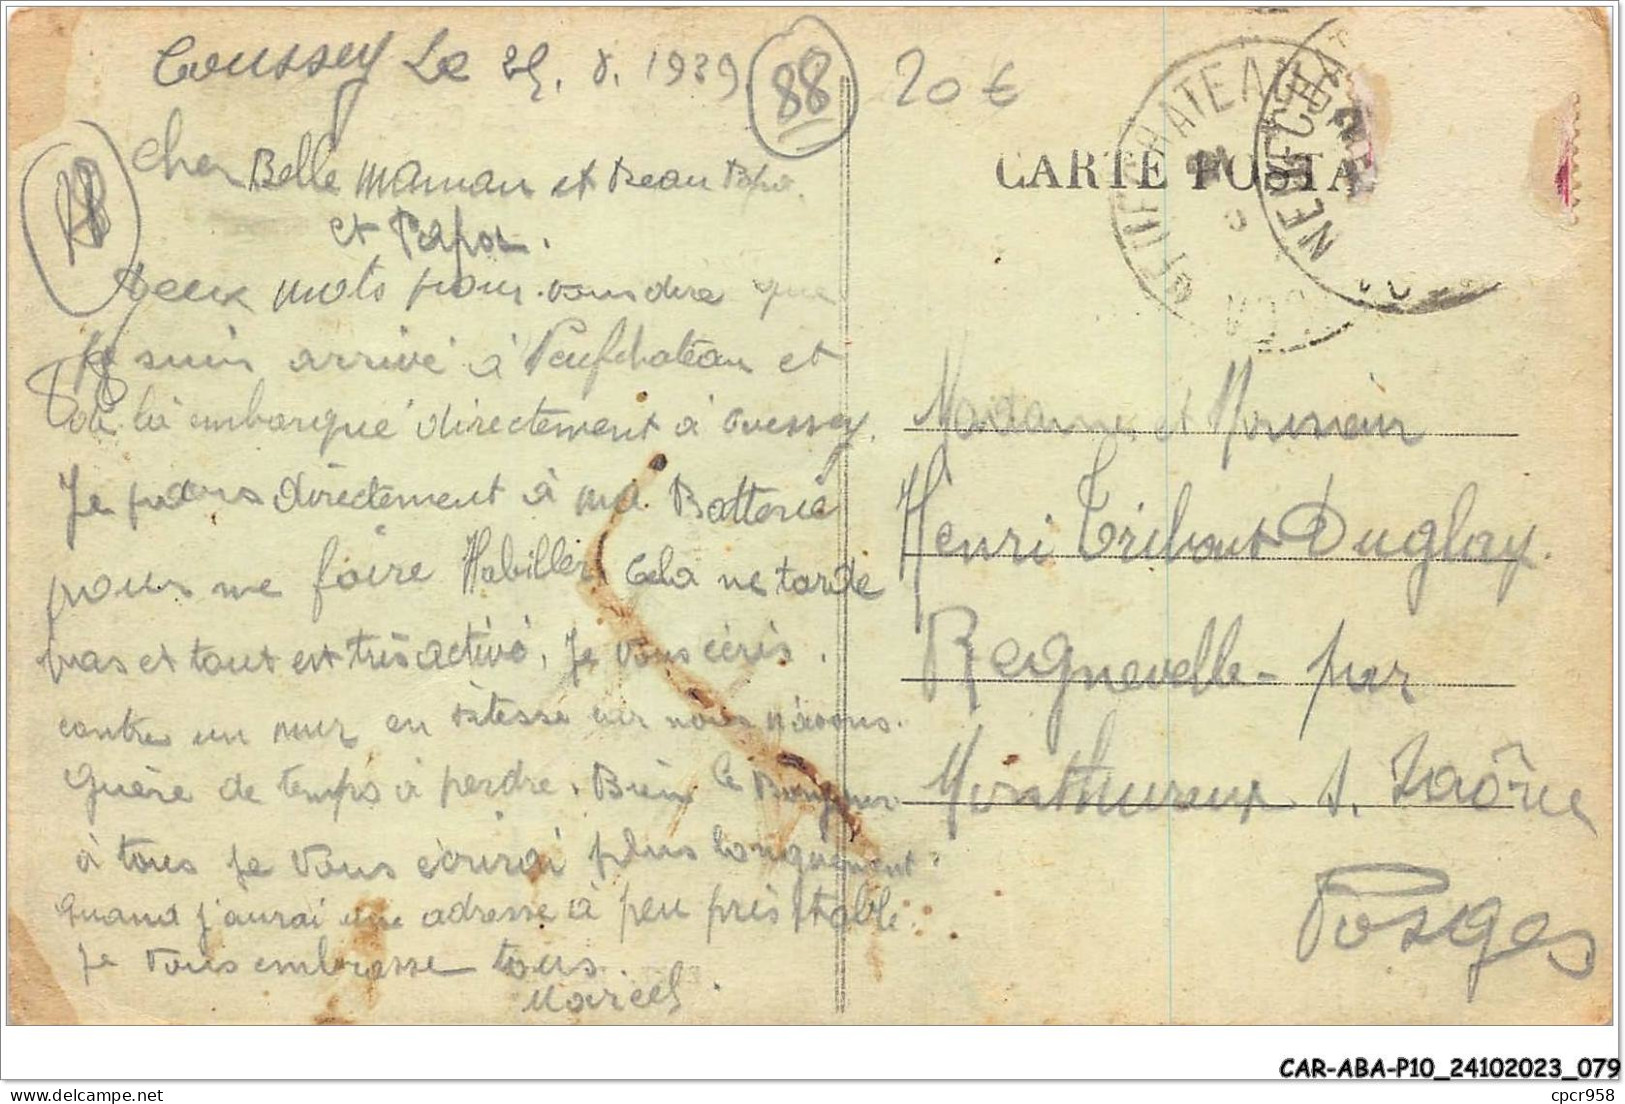 Coussey Le 25. 8. 1939
88
20 €
cher Belle maman et Beau Papa
et Papa.
88
deux mots pour vous dire que
je suis arrivé à Neufchateau et
de là embarqué directement à Coussey.
Je pars directement à ma Batterie
pour me faire Habiller. Cela ne tarde
pas et tout est très activé. Je vous écris.
contre un mur en vitesse car nous n'avons.
guère de temps à perdre. Bien le Bonjour
à tous je vous écrirai plus longuement
quand j'aurai une adresse à peu près stable.
je vous embrasse tous.
Marcel.
CARTE POSTA
NEUFCHATEAU
NEUFCHATEAU
Madame et Monsieur
Henri Duglay.
Regnevelle - par
Monthureux s. Saône
Vosges
CAR-ABA-P10_24102023_079
cpcr958